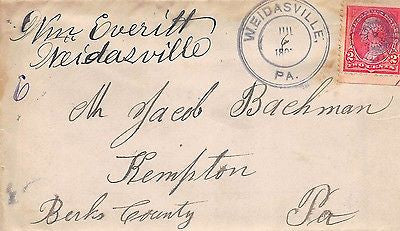 Wm Everitt
Neidasville
WEIDASVILLE,
JUL
6
189
PA.
2 2
TWO CENTS
6
Mr Jacob Bachman
Kempton
Berks County Pa